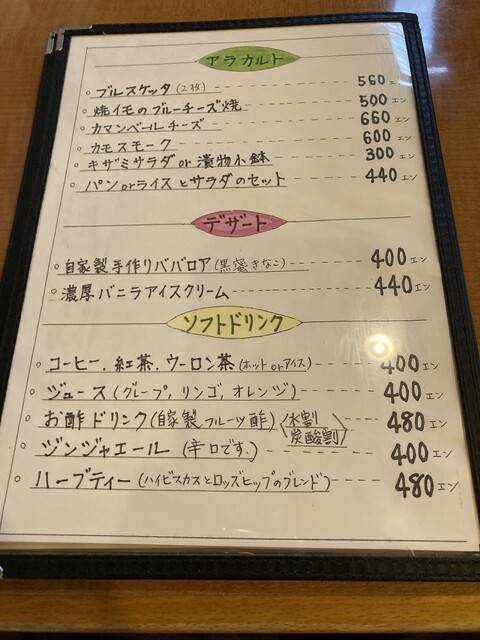 アラカルト
ブルスケッタ(2枚) 560エン
焼イモのブルーチーズ焼 500エン
カマンベールチーズ 660エン
カモスモーク 600エン
キザミサラダor漬物小鉢 300エン
パンorライスとサラダのセット 440エン
デザート
自家製手作りババロア(黒蜜きなこ) 400エン
濃厚バニラアイスクリーム 440エン
ソフトドリンク
コーヒー.紅茶.ウーロン茶(ホットorアイス) 400エン
ジュース(グレープ,リンゴ,オレンジ) 400エン
お酢ドリンク(自家製フルーツ酢)〈水割 炭酸割〉 480エン
ジンジャエール(辛口です.) 400エン
ハーブティー(ハイビスカスとロッズヒップのブレンド) 480エン